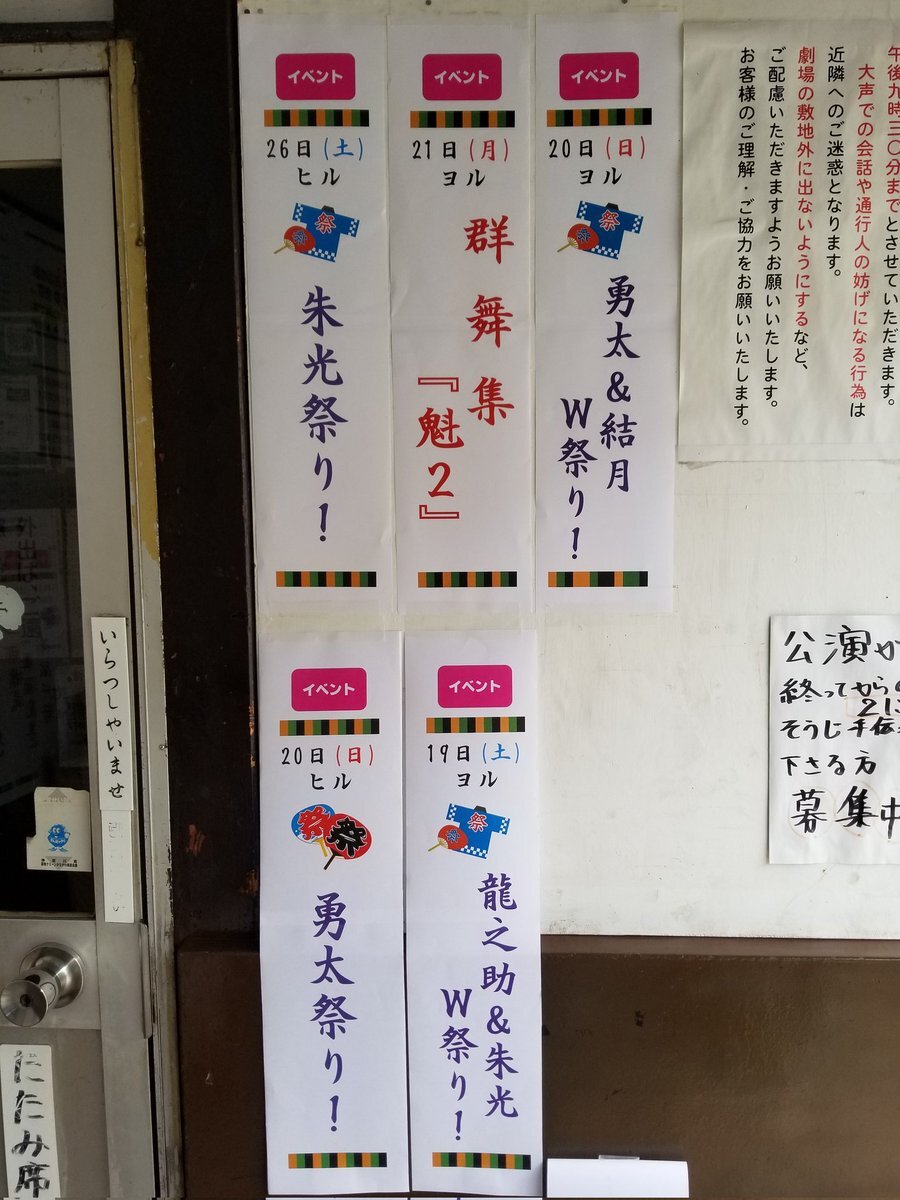 イベント
20日(日)
ヨル
祭
勇太&結月
W祭り!
イベント
21日(月)
ヨル
群舞集
『魁2』
イベント
26日(土)
ヒル
祭
朱光祭り!
イベント
19日(土)
ヨル
祭
龍之助&朱光
W祭り!
イベント
20日(日)
ヒル
祭
祭
勇太祭り!
午後九時三〇分までとさせていただきます。
大声での会話や通行人の妨げになる行為は
近隣へのご迷惑となります。
劇場の敷地外に出ないようにするなど、
ご配慮いただきますようお願いいたします。
お客様のご理解・ご協力をお願いいたします。
公演が
終ってから
そうじ手伝
下さる方
募集中
いらっしゃいませ
たたみ席